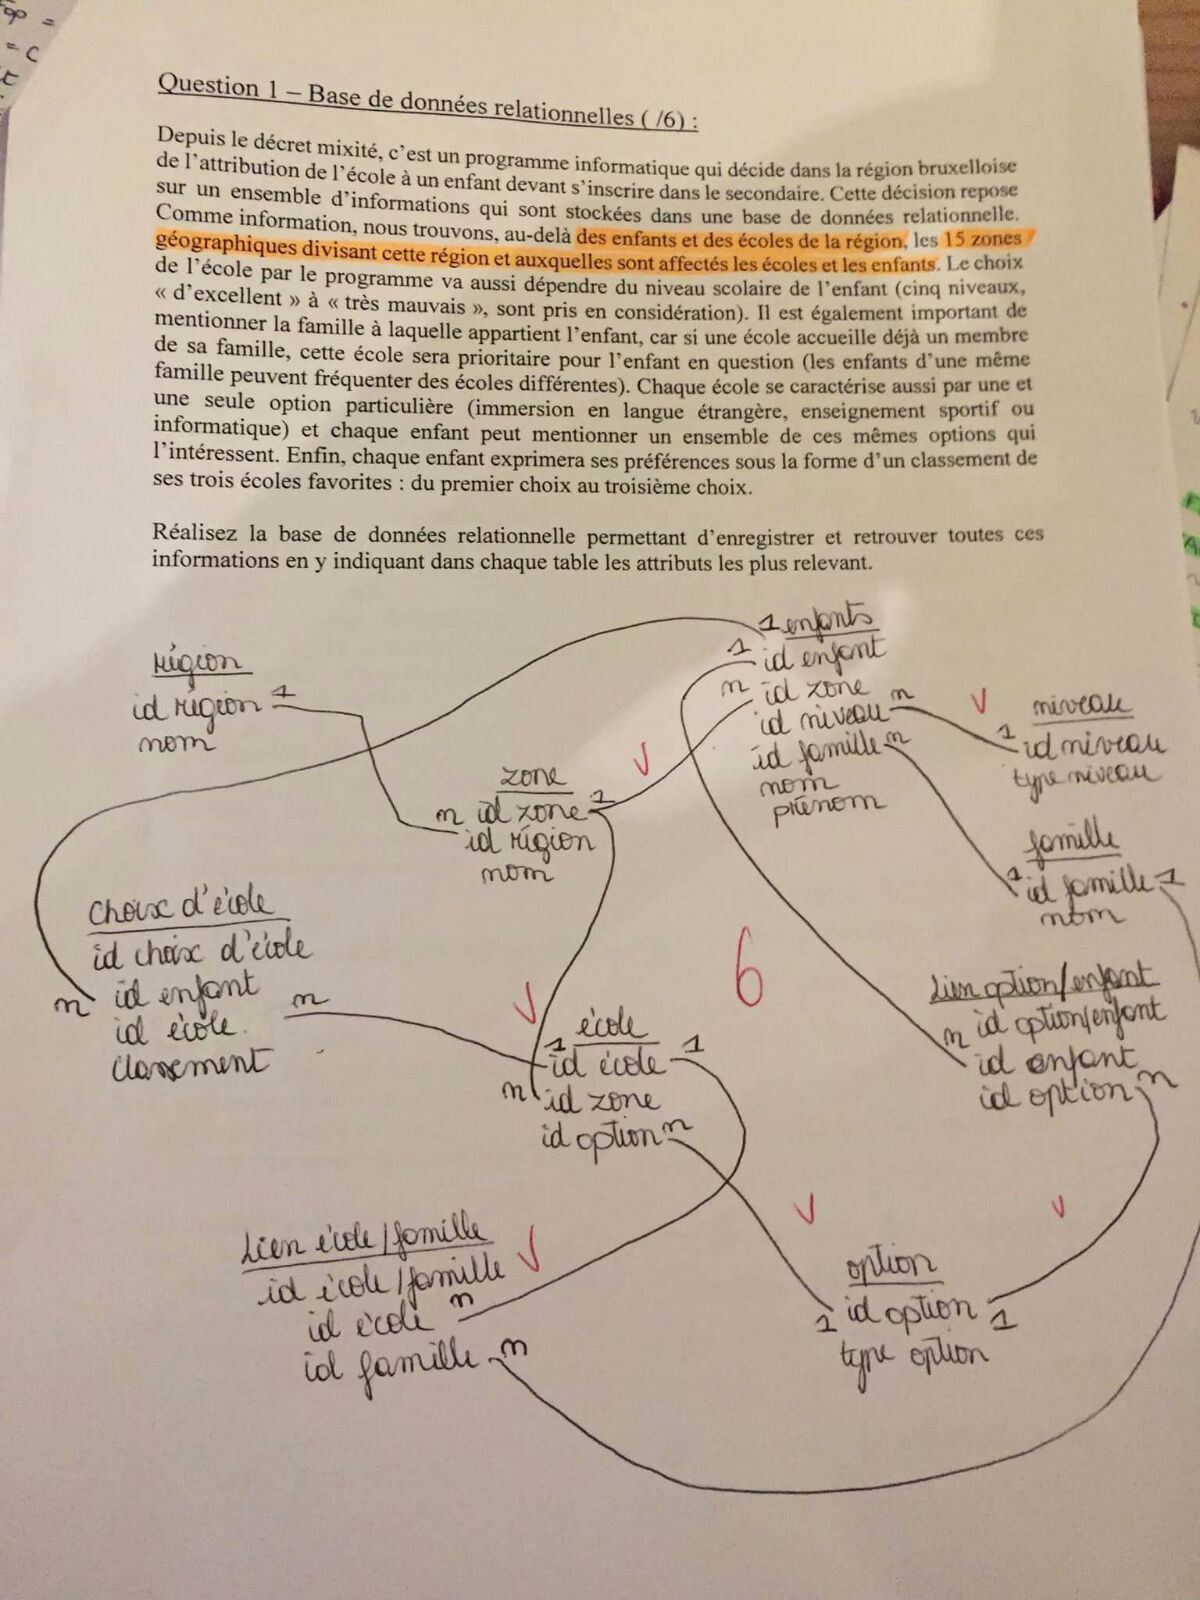 Top =
= C
Question 1 – Base de données relationnelles ( /6) :
Depuis le décret mixité, c'est un programme informatique qui décide dans la région bruxelloise
de l'attribution de l'école à un enfant devant s'inscrire dans le secondaire. Cette décision repose
sur un ensemble d'informations qui sont stockées dans une base de données relationnelle.
Comme information, nous trouvons, au-delà des enfants et des écoles de la région, les 15 zones
géographiques divisant cette région et auxquelles sont affectés les écoles et les enfants. Le choix
de l'école par le programme va aussi dépendre du niveau scolaire de l'enfant (cinq niveaux,
« d'excellent » à « très mauvais », sont pris en considération). Il est également important de
mentionner la famille à laquelle appartient l'enfant, car si une école accueille déjà un membre
de sa famille, cette école sera prioritaire pour l'enfant en question (les enfants d'une même
famille peuvent fréquenter des écoles différentes). Chaque école se caractérise aussi par une et
une seule option particulière (immersion en langue étrangère, enseignement sportif ou
informatique) et chaque enfant peut mentionner un ensemble de ces mêmes options qui
l'intéressent. Enfin, chaque enfant exprimera ses préférences sous la forme d'un classement de
ses trois écoles favorites : du premier choix au troisième choix.
Réalisez la base de données relationnelle permettant d'enregistrer et retrouver toutes ces
informations en y indiquant dans chaque table les attributs les plus relevant.
région
id région 1
nom
1 enfants
1 id enfant
n id zone
id niveau n
id famille n
nom
prénom
niveau
1 id niveau
type niveau
zone
n id zone 1
id région
nom
famille
1 id famille 1
nom
choix d'école
id choix d'école
n id enfant n
id école
classement
6
Lien option/enfant
n id option/enfant
id enfant
id option n
école
1 id école 1
n id zone
id option n
Lien école/famille
id école/famille
id école n
id famille n
option
1 id option 1
type option